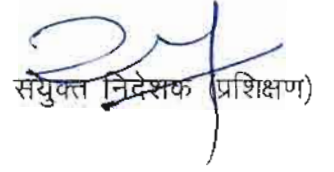 संयुक्त निदेशक (प्रशिक्षण)